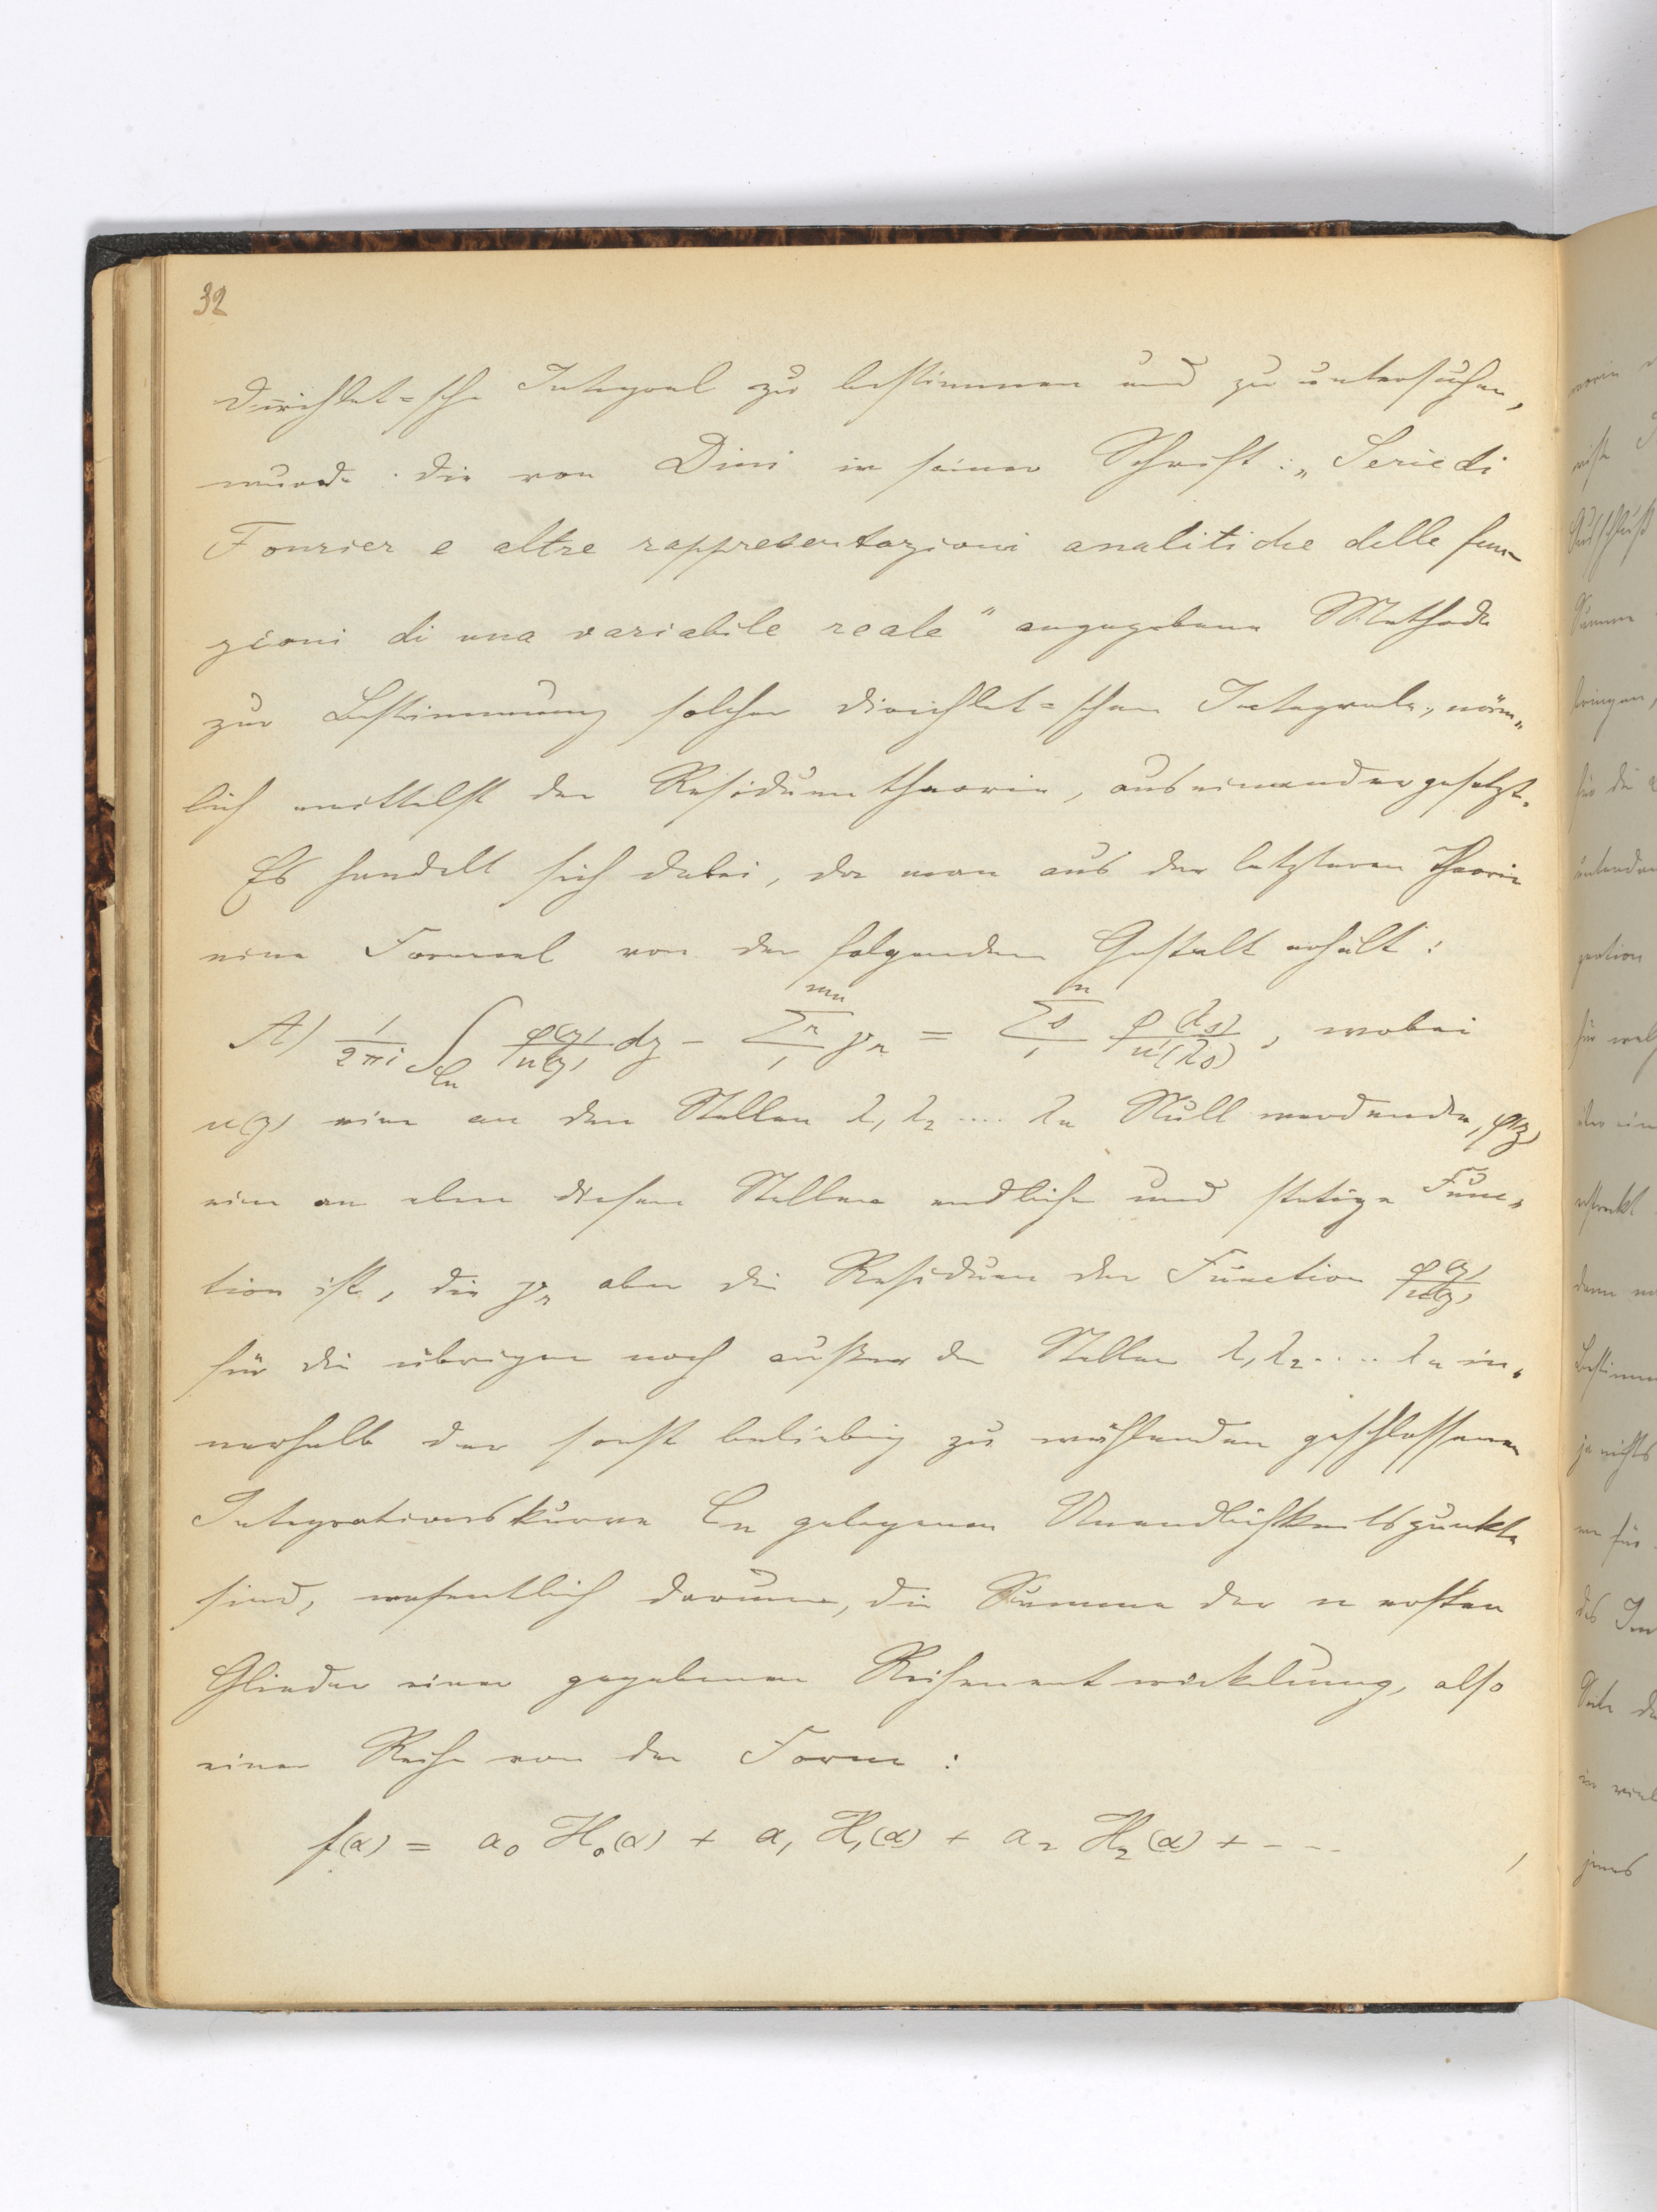 32
Dirichlet=sche Integral zu bestimmen und zu untersuchen,
wurde die von Dini in seiner Schrift: „Serie di
Fourier e altre rappresentazioni analitiche delle fun-
zioni di una variabile reale" angegebene Methode
zur Bestimmung solcher Dirichlet=schen Integrale, näm„
lich mittelst der Residuentheorie, auseinandergesetzt.
Es handelt sich dabei, da man aus der letzteren Theorie
eine Formel von der folgenden Gestalt erhält:
A) 1/2πi ∫_{Cn} φ(z)/u(z) dz - Σ^{mn}_{1} r γ_r = Σ^{n}_{1} s φ(λ_s)/u'(λ_s), wobei
u(z) eine an den Stellen λ₁ λ₂ .... λn Null werdende, φ(z)
eine an eben diesen Stellen endliche und stetige Func„
tion ist, die γ_r aber die Residuen der Function φ(z)/u(z)
für die übrigen noch außer den Stellen λ₁ λ₂ .... λn in„
nerhalb der sonst beliebig zu wählenden geschlossenen
Integrationskurve Cn gelegenen Unendlichkeitspunkte
sind, wesentlich darum, die Summe der n ersten
Glieder einer gegebenen Reihenentwickelung, also
einer Reihe von der Form:
f(α) = a₀ H₀(α) + a₁ H₁(α) + a₂ H₂(α) + - - - ,